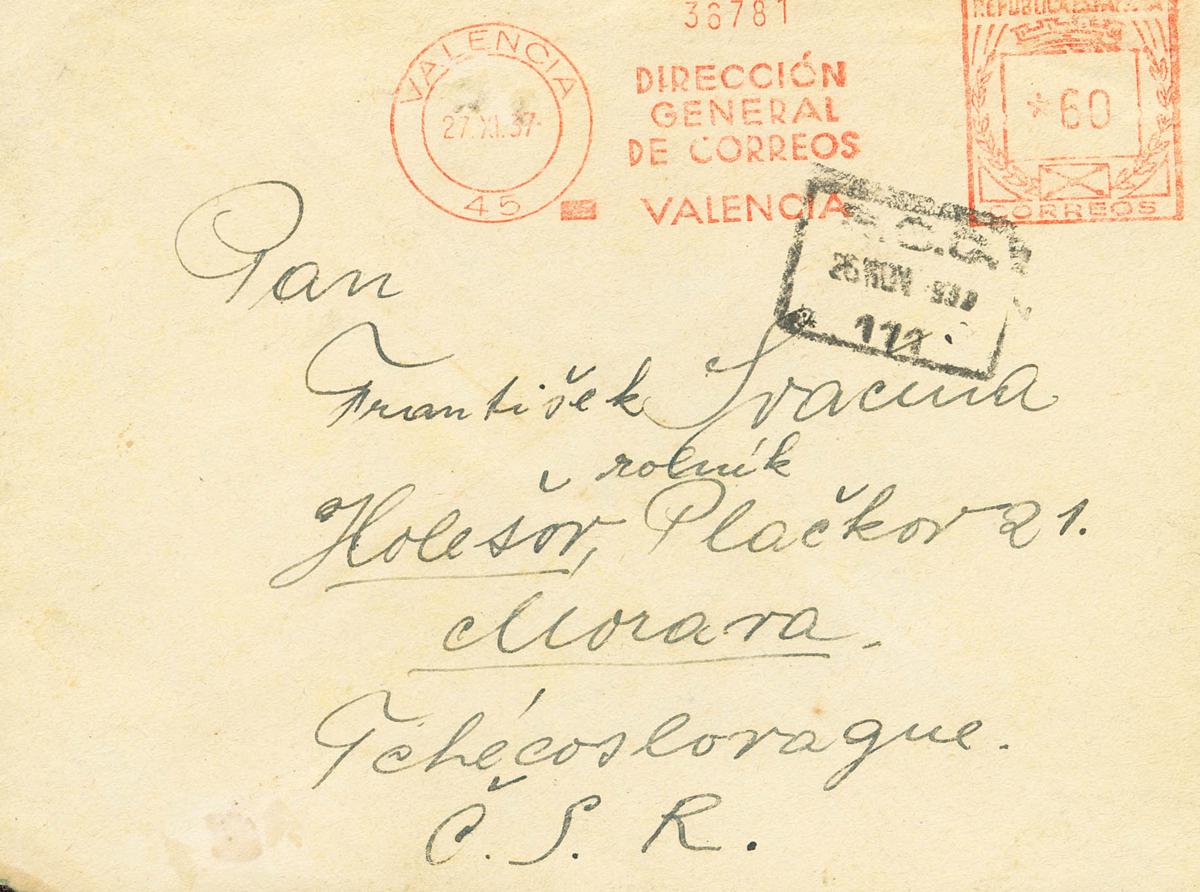 36781
REPUBLICA ESPAÑOLA
VALENCIA
27.XI.37
45
DIRECCIÓN
GENERAL
DE CORREOS
VALENCIA
*60
CORREOS
26 NOV 937
111
Pan
František Svacina
rolník
Holešov, Plačkov 21.
Morava.
Tchécoslovaque.
Č. S. R.